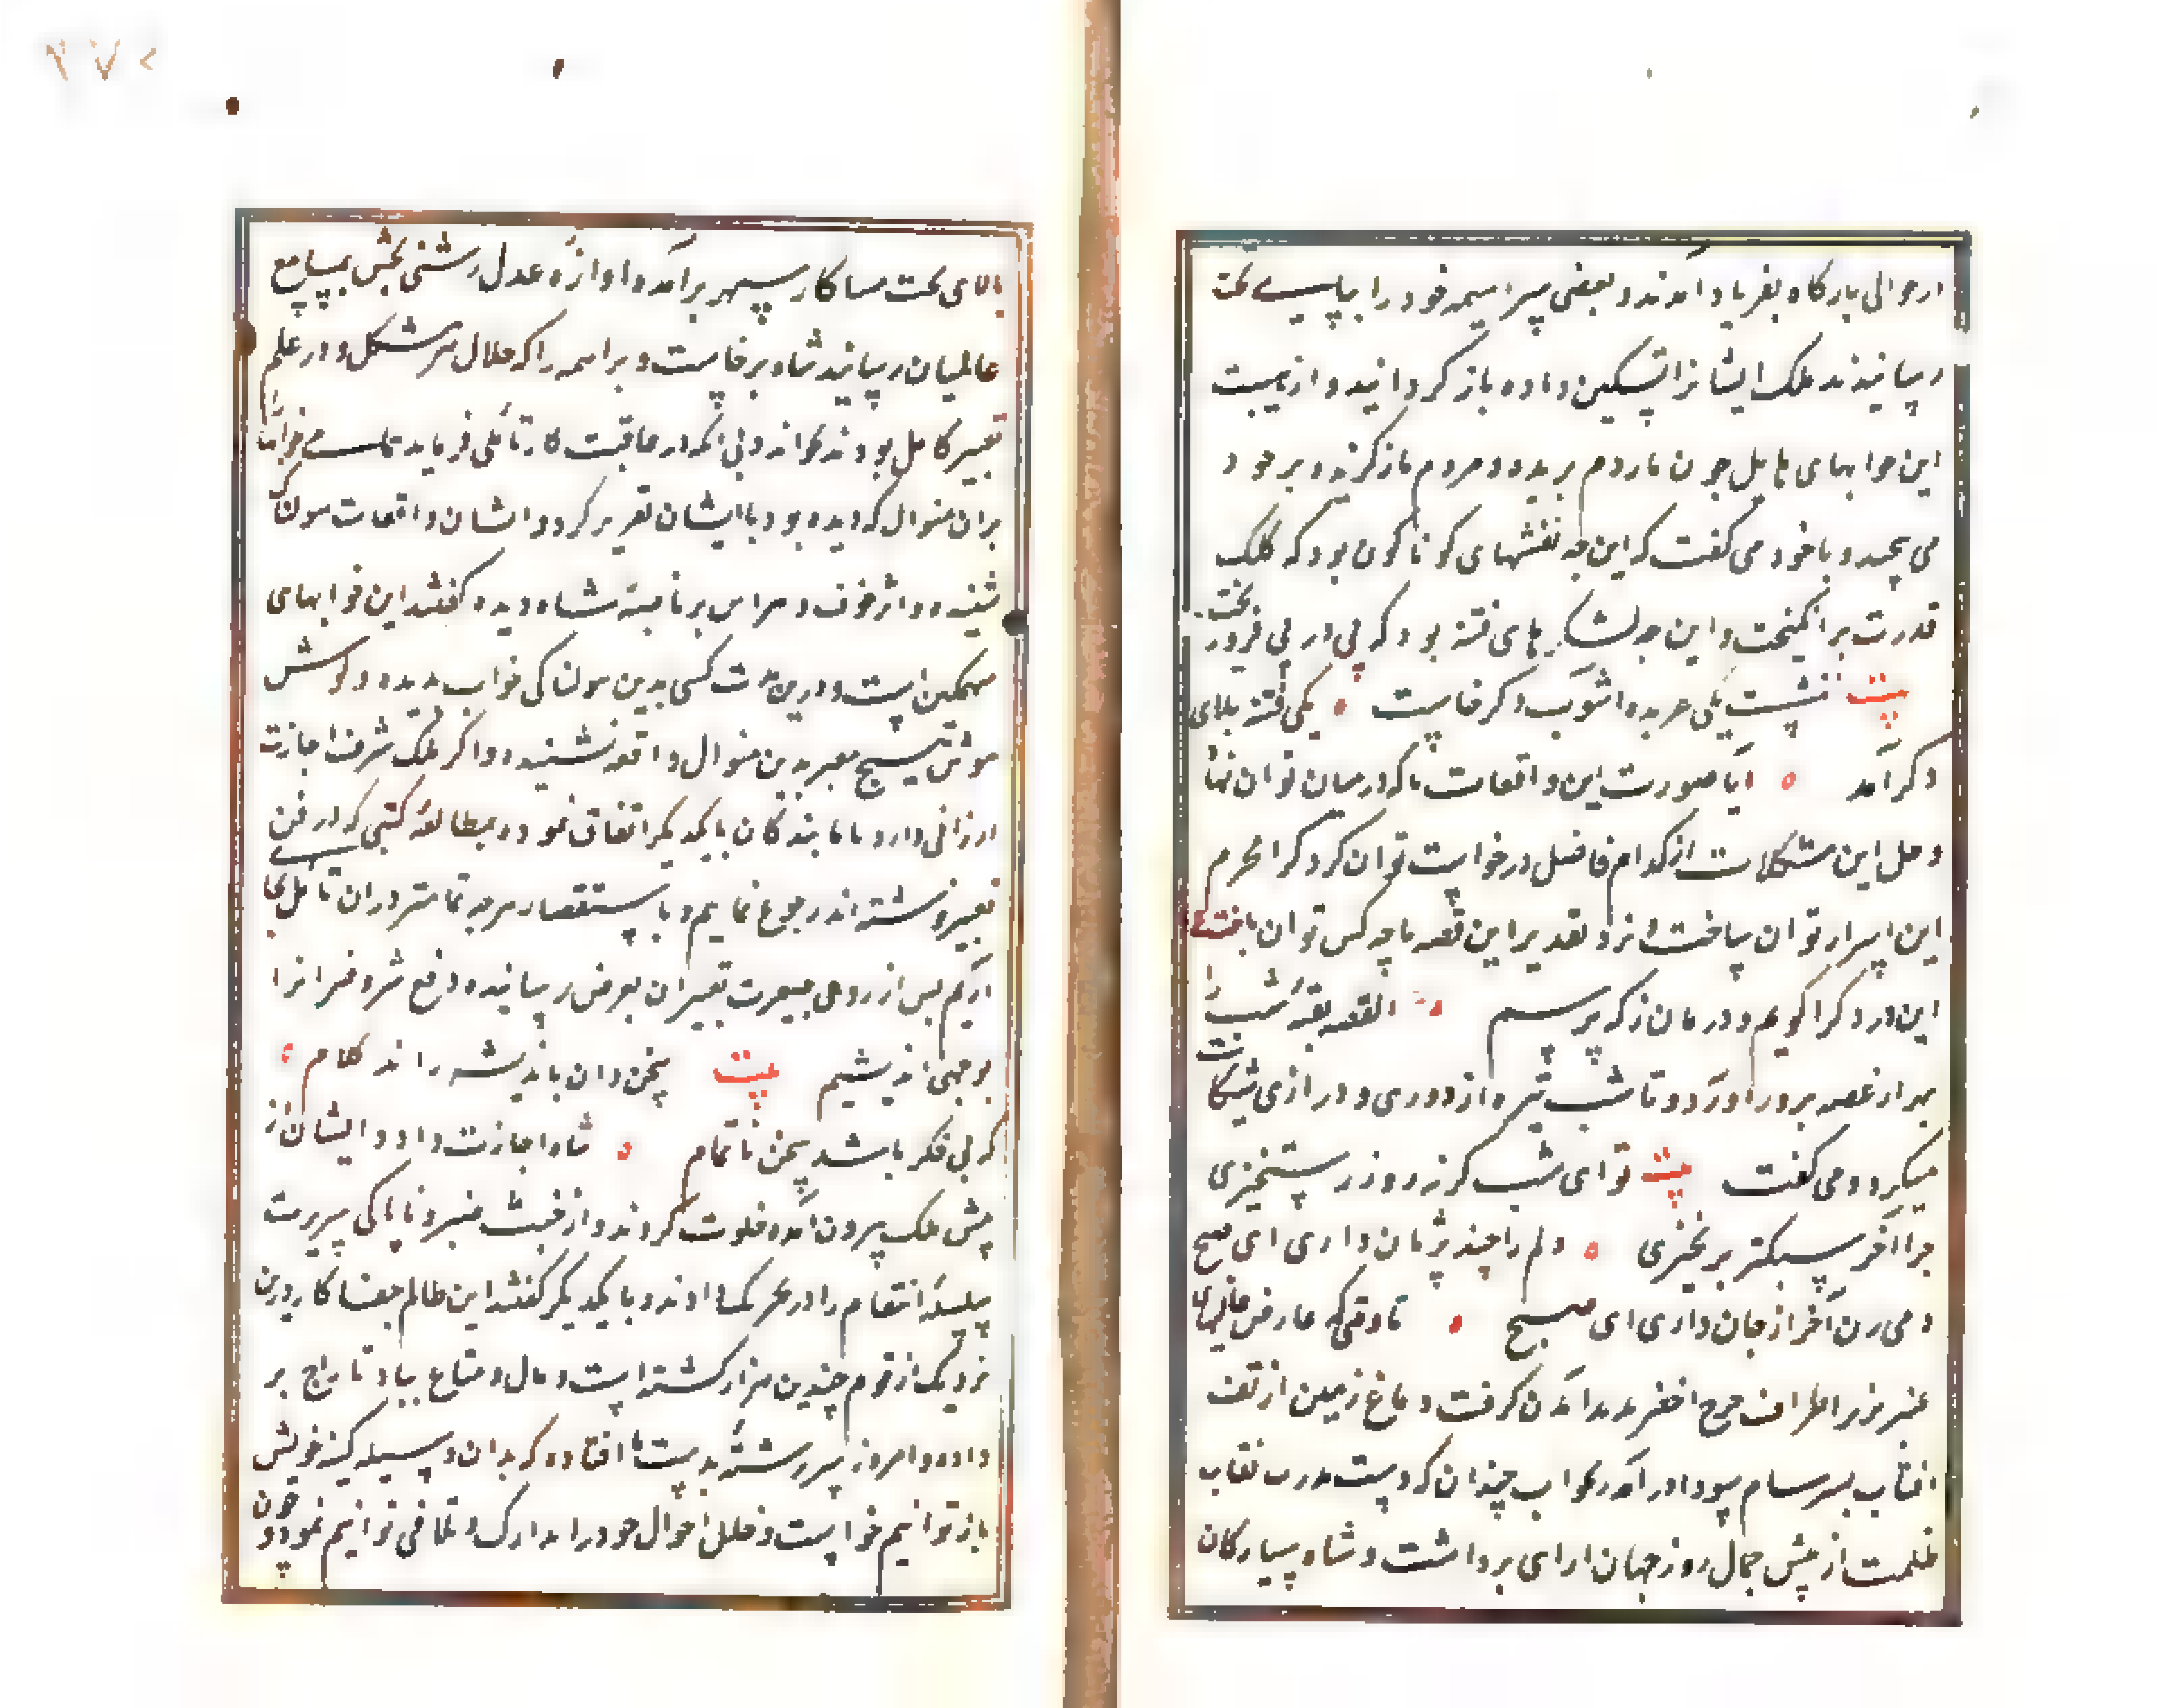 از حوالی بارگاه بفریاد آمدند و بعضی سراسیمه خود را بپایسے تخت
رسانیدند ملک ایشانرا تسکین داده باز گردانید و از هیبت
این خوابهای هایل چون مار دم بریده و مردم مار گزیده بر خود
می پیچید و با خود می گفت که این چه نقشهای گوناگون بود که کلک
قدرت برانگیخت و این چه لشکرهای فتنه بود که پی در پی فرو ریخت
بیت ننشست یکی عربده آشوب دگر خاست یکی فتنه بلای
دگر آمد آیا صورت این واقعات با که در میان توان نهاد
و حل این مشکلات از کدام فاضل درخواست توان کرد کرا محرم
این اسرار توان ساخت و نرد تقدیر این قصه با چه کس توان باخت ع
این درد کرا گویم و درمان ز که پرسم القصه بقیه شب را
بهر از غصه بروز آورد و تا شب تیره از دوری و درازی شکایت
میکرد و می گفت بیت تو ای شب گر نه روز رستخیزی
چرا آخر سبکتر بر نخیزی دلم را چند پژمان داری ای صبح
دمی زن آخر از جان داری ای صبح تا وقتی که عارض عالیها
عنبر بوز اطراف چرخ اخضر پدید آمدن گرفت و دماغ زمین از تف
آفتاب بسرسام سودا در آمد بخواب چندان که دست قدرت نقاب
ظلمت از پیش جمال روز جهان آرای برداشت و شاه سیارگان
بالای تخت مینا کار سپهر برآمد و آوازه عدل روشنی بخش بمسامع
عالمیان رسانید شاه برخاست و براهمه را که حلال هر مشکل و در علم
تعبیر کامل بودند بخواند و بی آنکه در عاقبت کار تأملی فرماید تمامے خوابها
بران منوال که دیده بود با ایشان تقریر کرد و ایشان واقعات هولناک
شنیده و اثر خوف و هراس بر ناصیه شاه دیده گفتند این خوابهای
سهمگین است و درین مدت کسی بدین هولناکی خواب ندیده و گوش
هوش هیچ معبر بدین منوال واقعه نشنیده و اگر ملک شرف اجازت
ارزانی دارد ما بندگان با یکدیگر اتفاق نموده بمطالعه کتبی که در فن
تعبیر نوشته اند رجوع نماییم و با ستقصار هرچه تمامتر دران تأمل بجای
آریم پس از روی بصیرت تعبیر آن بعرض رسانیده دفع شر و ضرر آنرا
بوجهی اندیشیم بیت سخن دان باندیشه راند کلام
که بی فکر باشد سخن ناتمام شاه اجازت داد و ایشان از
پیش ملک بیرون آمده خلوت کردند و از خبث ضمیر و ناپاکی سیرت
سلسله انتقام را در تحریک دادند و با یکدیگر گفتند این ظالم جفا کار درین
نزدیک از قوم چندین هزار کشته است و مال و متاع بباد تاراج بر
داده و امروز سررشته بدست ما افتاده که بدان وسیله کینه خویش
باز توانیم خواست و خلل احوال خود را تدارک و تلافی توانیم نمود و چون